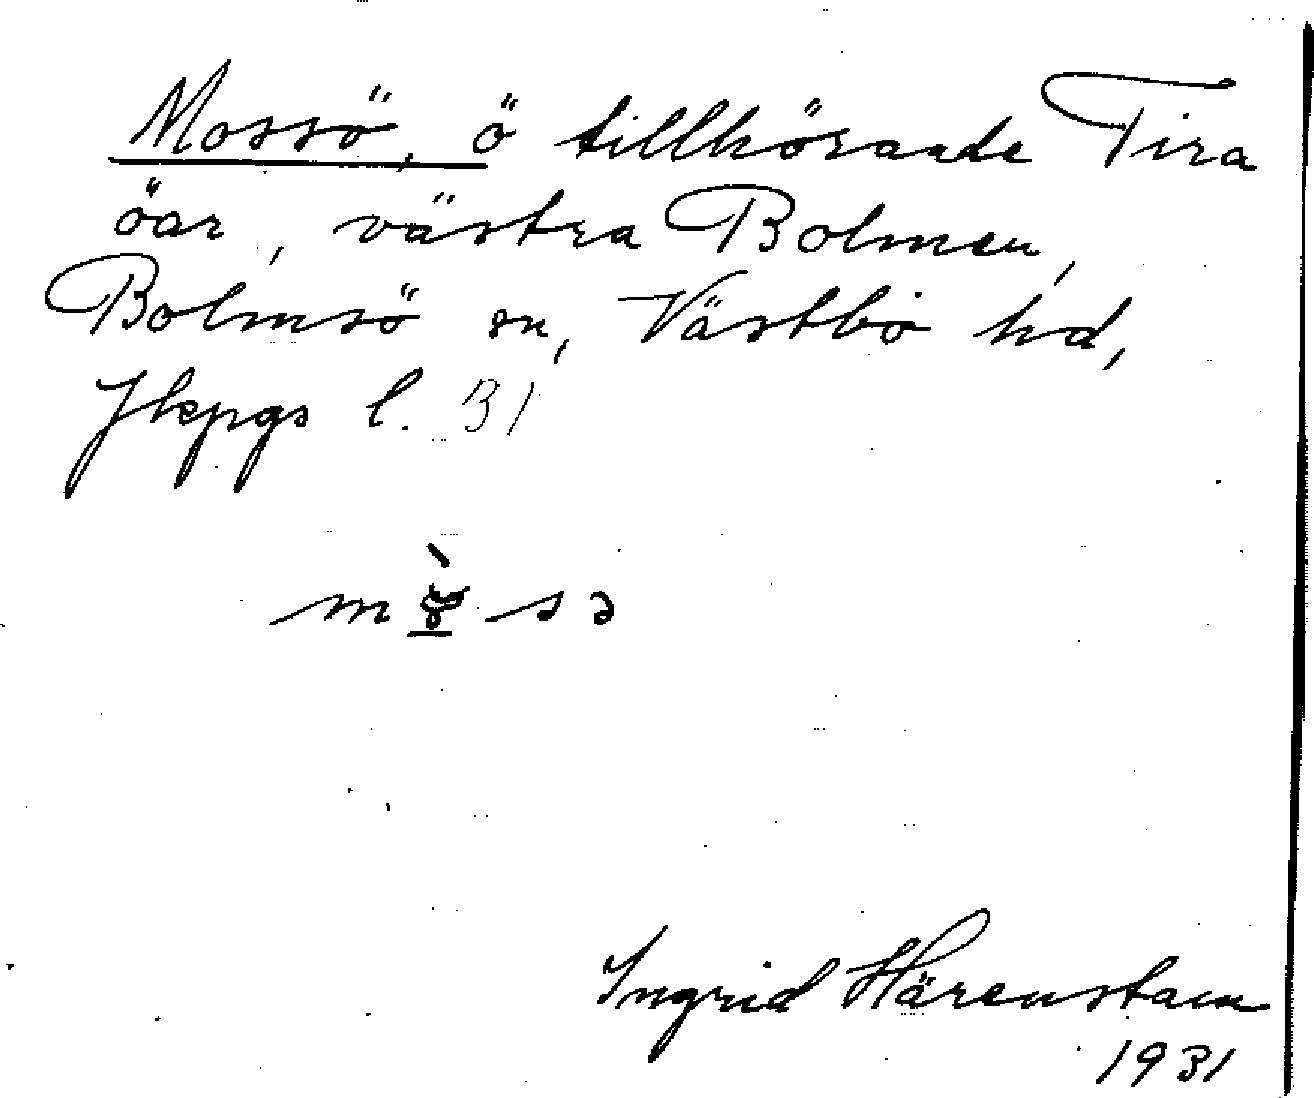 Mossö, ö tillhörande Tira
öar, västra Bolmen,
Bolmsö sn, Västbo hd,
Jkpgs l. 31
Ingrid Härenstam
1931